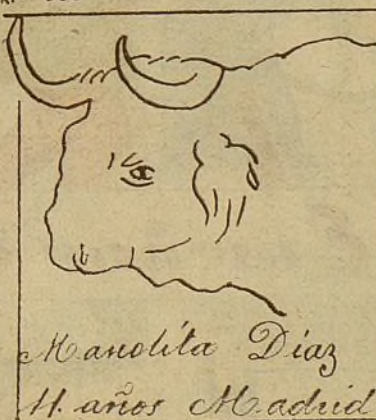 Manolita Díaz
11. años Madrid